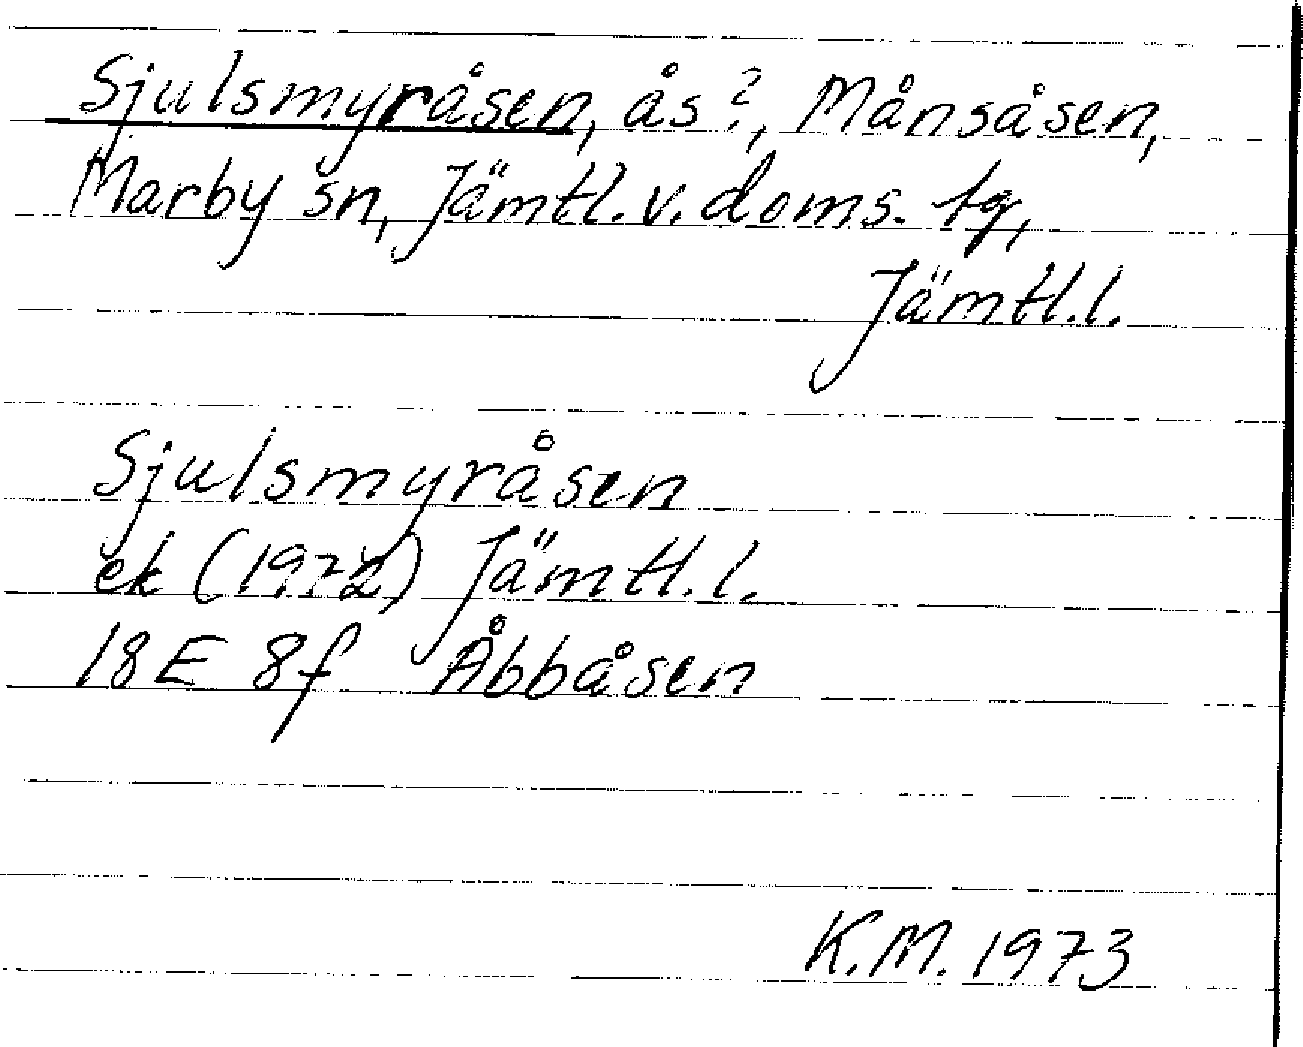 Sjulsmyråsen, ås?, Månsåsen,
Marby sn, Jämtl. v. doms. tg,
Jämtl. l.
Sjulsmyråsen
ek (1972) Jämtl. l.
18E 8f Åbbåsen
K.M. 1973